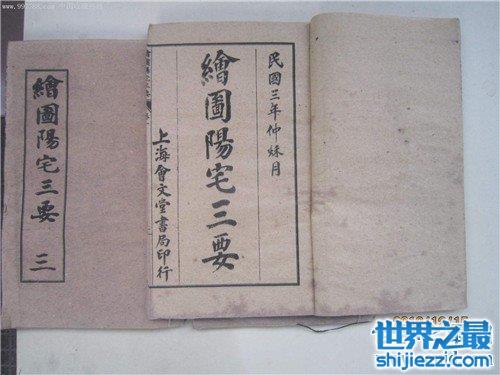 繪圖陽宅三要 三
民國三年仲秌月
繪圖陽宅三要
上海會文堂書局印行
世界之最
shijiezzl.com